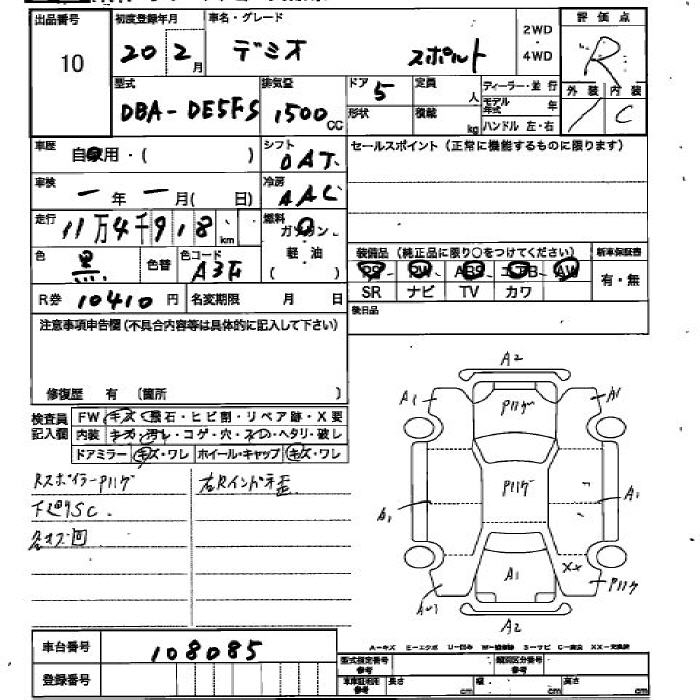 出品番号 初度登録年月 車名・グレード 2WD・4WD 評価点
10 20年 2月 デミオ スポルト R
型式 排気量 ドア 定員 ディーラー・並行 外装 内装
DBA-DE5FS 1500CC 5 人 モデル年式 年 C
形状 積載 kg ハンドル 左・右
車歴 自家用・( ) シフト OAT セールスポイント(正常に機能するものに限ります)
車検 一年一月( 日) 冷房 AAC
走行 11万4千918km 燃料 ガソリン 軽油
色 黒 色替 色コード A3F 装備品(純正品に限り○をつけてください) 新車保証書
PS PW ABS エアB AW 有・無
R券 10410円 名変期限 月 日 SR ナビ TV カワ
後日品
注意事項申告欄(不具合内容等は具体的に記入して下さい)
修復歴 有(箇所 )
検査員記入欄 FW キズ・飛石・ヒビ割・リペア跡・X要
内装 キズ・汚レ・コゲ・穴・スレ・ヘタリ・破レ
ドアミラー キズ・ワレ ホイール・キャップ キズ・ワレ
RスポイラーP117ゲ 右Rインパネ歪
下廻りSC
A2
A1 P117ゲ A1
P117ゲ
A1 A1
A1 XX P117ゲ
A2
車台番号 108085
登録番号
A-キズ E-エクボ U-凹み W-補修跡 S-サビ C-腐食 XX-交換済
型式指定番号 類別区分番号
車庫証明用参考 長さ cm 幅 cm 高さ cm